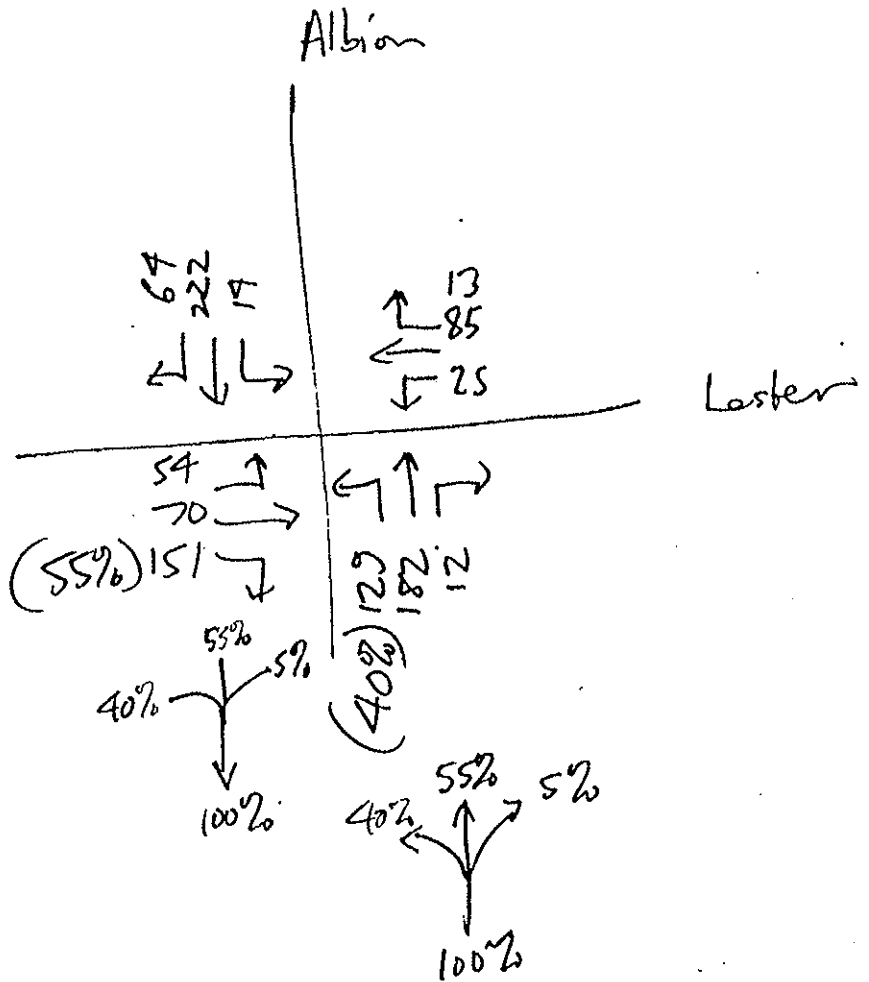 Albion
64
222
14
13
85
25
Lester
54
70
(55%) 151
(40%) 129
182
12
55%
5%
40%
100%
55%
5%
40%
100%